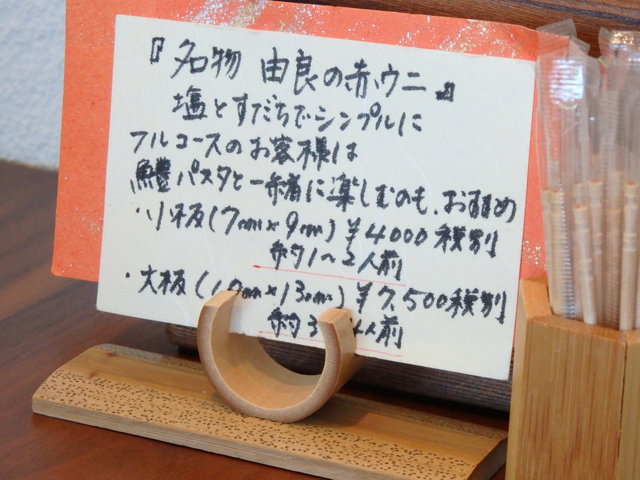 『名物 由良の赤ウニ』
塩とすだちでシンプルに
フルコースのお客様は
鱧パスタと一緒に楽しむのも、おすすめ
・小板(7mm×9mm)¥4000税別
約1〜2人前
・大板(10mm×13mm)¥7,500税別
約3 4人前